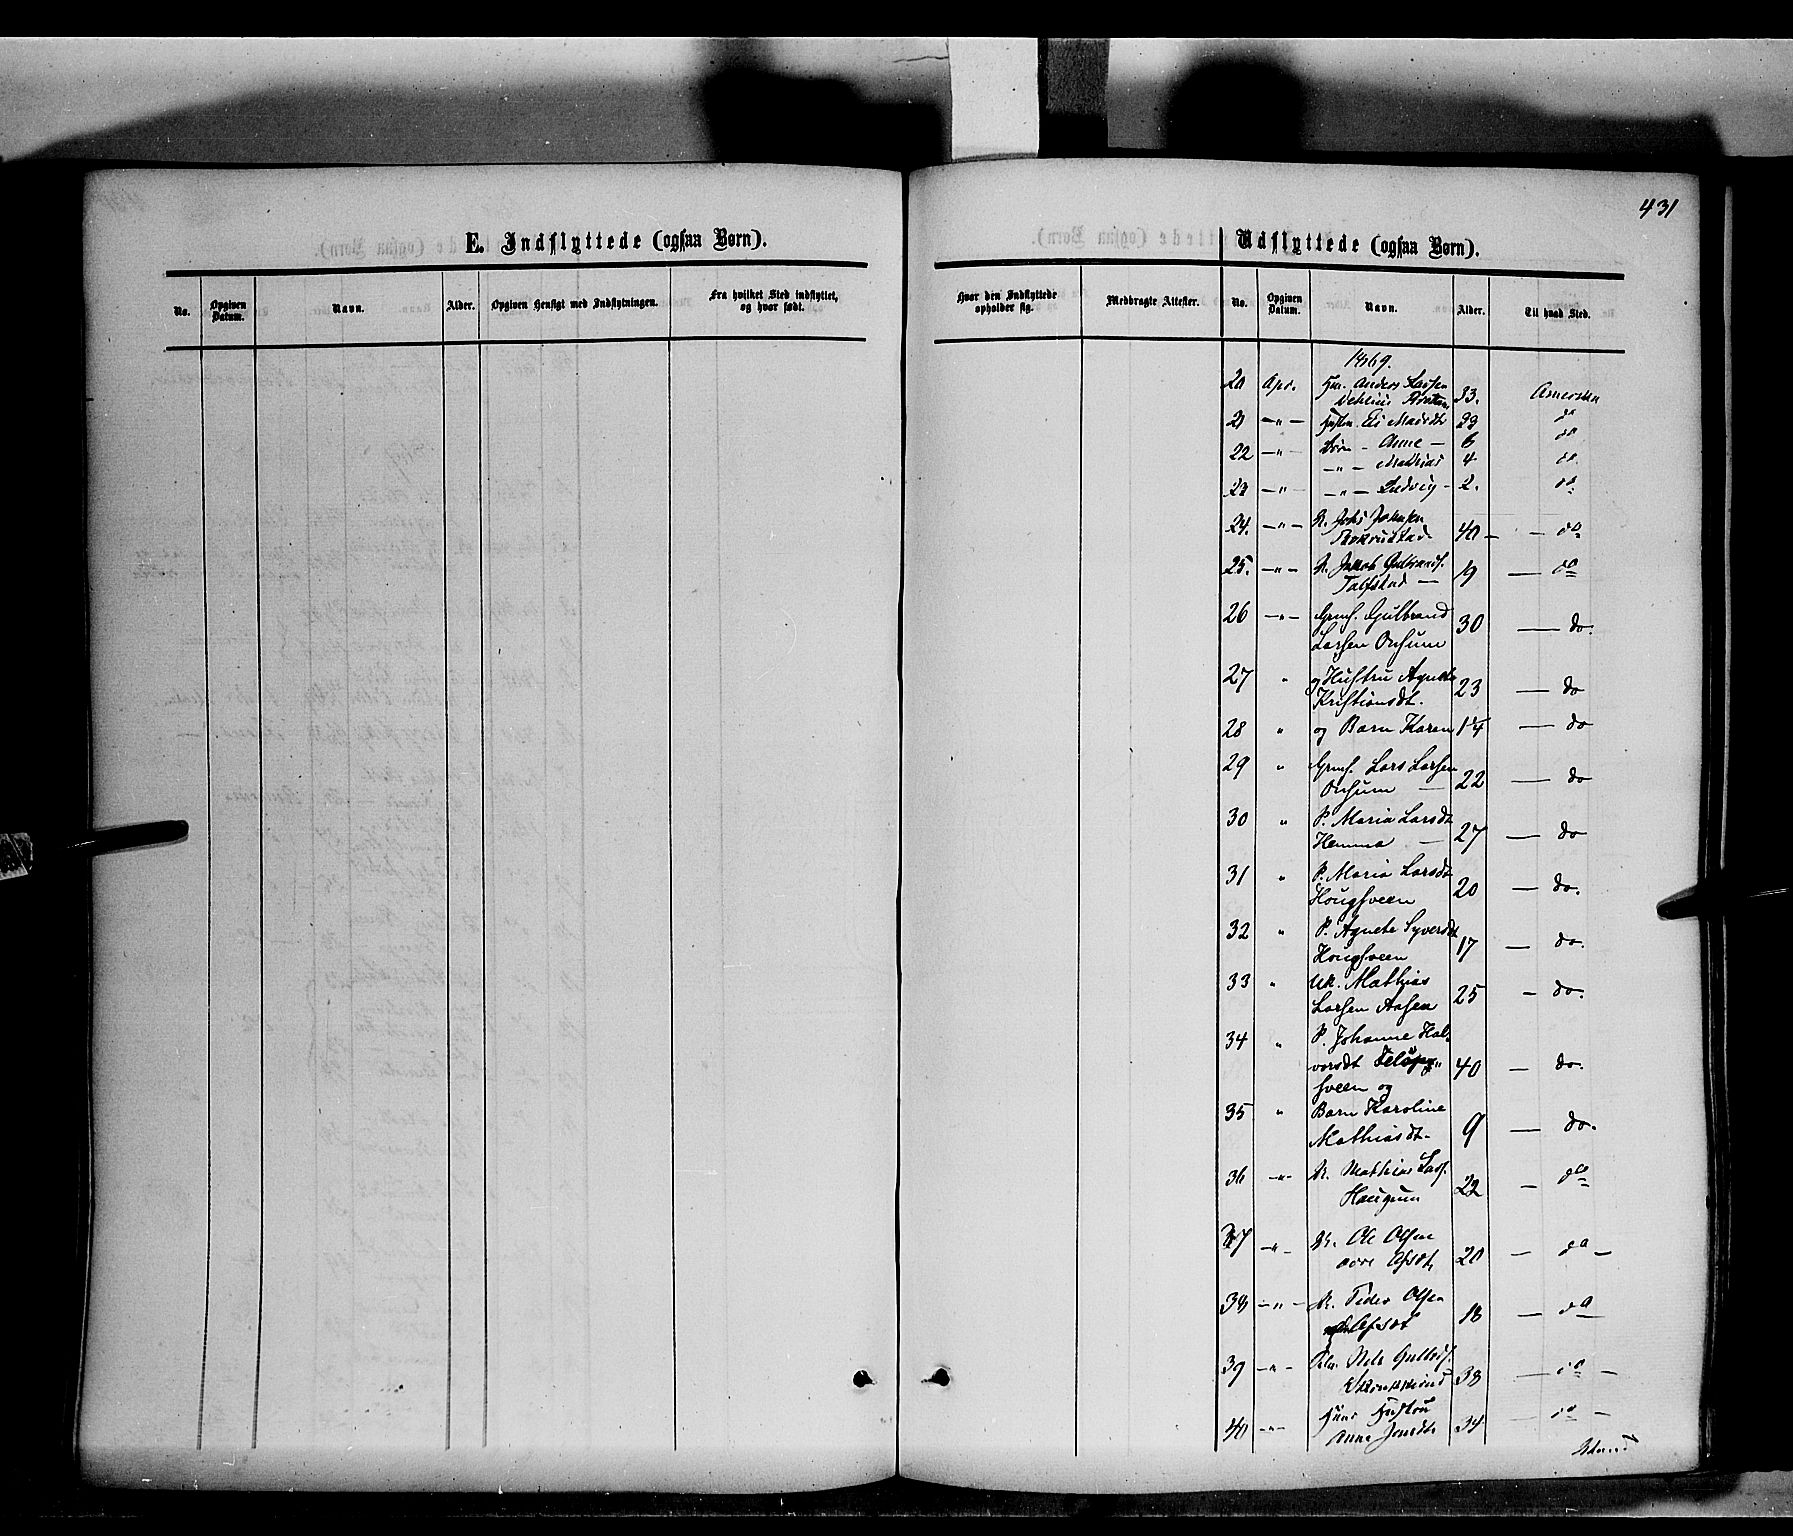 431
E. Indflyttede (ogsaa Børn).
No.
Opgiven Datum.
Navn.
Alder.
Opgiven Hensigt med Indflytningen.
Fra hvilket Sted indflyttet, og hvor født.
Udflyttede (ogsaa Børn).
Hvor den Indflyttede opholder sig.
Medbragte Attester.
No.
Opgiven Datum.
Navn.
Alder.
Til hvad Sted.
1869.
20 Apr. Anders Larsen
33. Amerika
21 -"- Madsdt 33 do
22 -"- Børn - Anne - 6 do
-"- Mathias 4 do
23 -"- -"- Ludvig - 2. do
24. -"- Johs Johnsen
40 - - do
25. -"- Jakob Gulbrands.
19 — do
26 -"- Grmd. Gulbrand
Larsen Onsum 30 — do.
27 " og Hustru Agnete
Kristiansdt. 23 — do
28 " og Barn Karen 1¼ — do
29 " Grmd. Lars Larsen
Onsum — 22 — do
30 " P. Maria Larsdt
Hemma — 27 — do
31 " P. Maria Larsdt
Hougsveen 20 — do.
32 " P. Agnete Syversdt
Hougsveen 17 — do.
33 " Uk. Mathias
Larsen Aasen 25 — do.
34 " P. Johanne Hal-
vorsdt
sveen og 40 — do.
35 " Barn Karoline
Mathiasdt. 9 — do.
36 -"- Mathias Lars.
Haugum 22 — do
37 -"- Ole Olsen
20 — do —
38 -"- Peder Olsen
18 — do
39 -"- Nels Gulbrds.
38 — do —
40 -"- Hans Hustru
Anne Jensdt 34 — do —